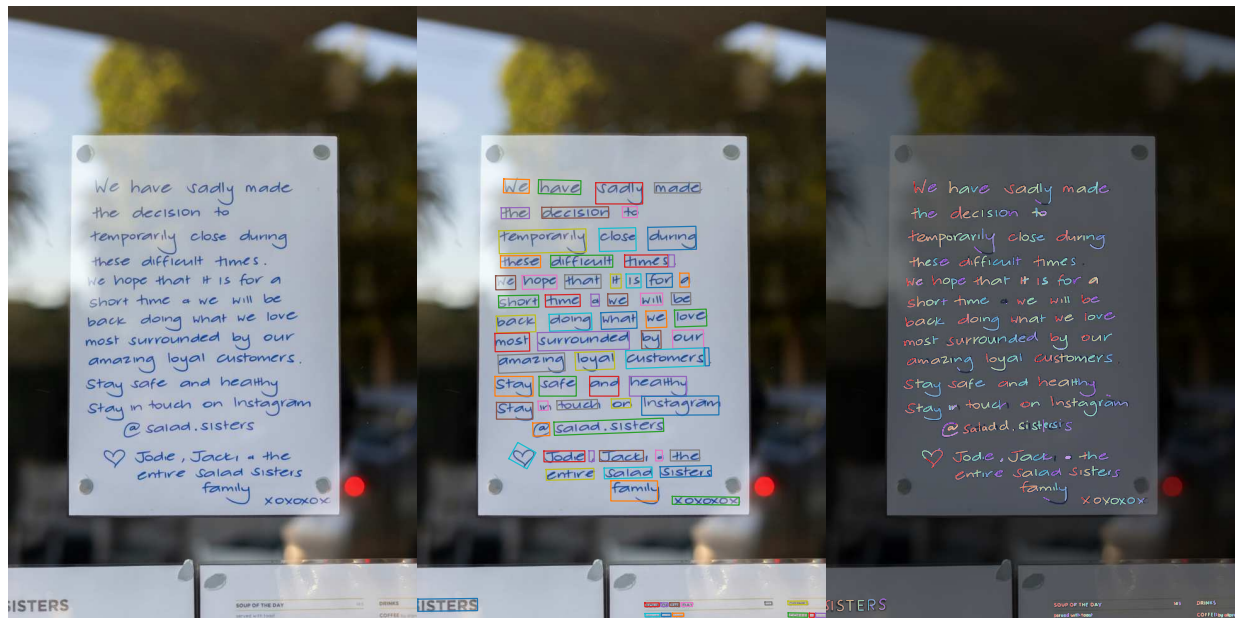 We have sadly made
the decision to
temporarily close during
these difficult times.
We hope that it is for a
short time & we will be
back doing what we love
most surrounded by our
amazing loyal customers.
Stay safe and healthy
Stay in touch on Instagram
@salad.sisters
♡ Jodie, Jacki & the
entire Salad Sisters
family
xoxoxox
SISTERS
SOUP OF THE DAY
served with toast
DRINKS
COFFEE
We have sadly made
the decision to
temporarily close during
these difficult times.
We hope that it is for a
short time & we will be
back doing what we love
most surrounded by our
amazing loyal customers.
Stay safe and healthy
Stay in touch on Instagram
@salad.sisters
♡ Jodie, Jacki & the
entire Salad Sisters
family
xoxoxox
SISTERS
We have sadly made
the decision to
temporarily close during
these difficult times.
We hope that it is for a
short time & we will be
back doing what we love
most surrounded by our
amazing loyal customers.
Stay safe and healthy
Stay in touch on Instagram
@saladd.sistersis
♡ Jodie, Jack & the
entire Salad Sisters
family
xoxoxox
SISTERS
SOUP OF THE DAY
served with toast
DRINKS
COFFEE